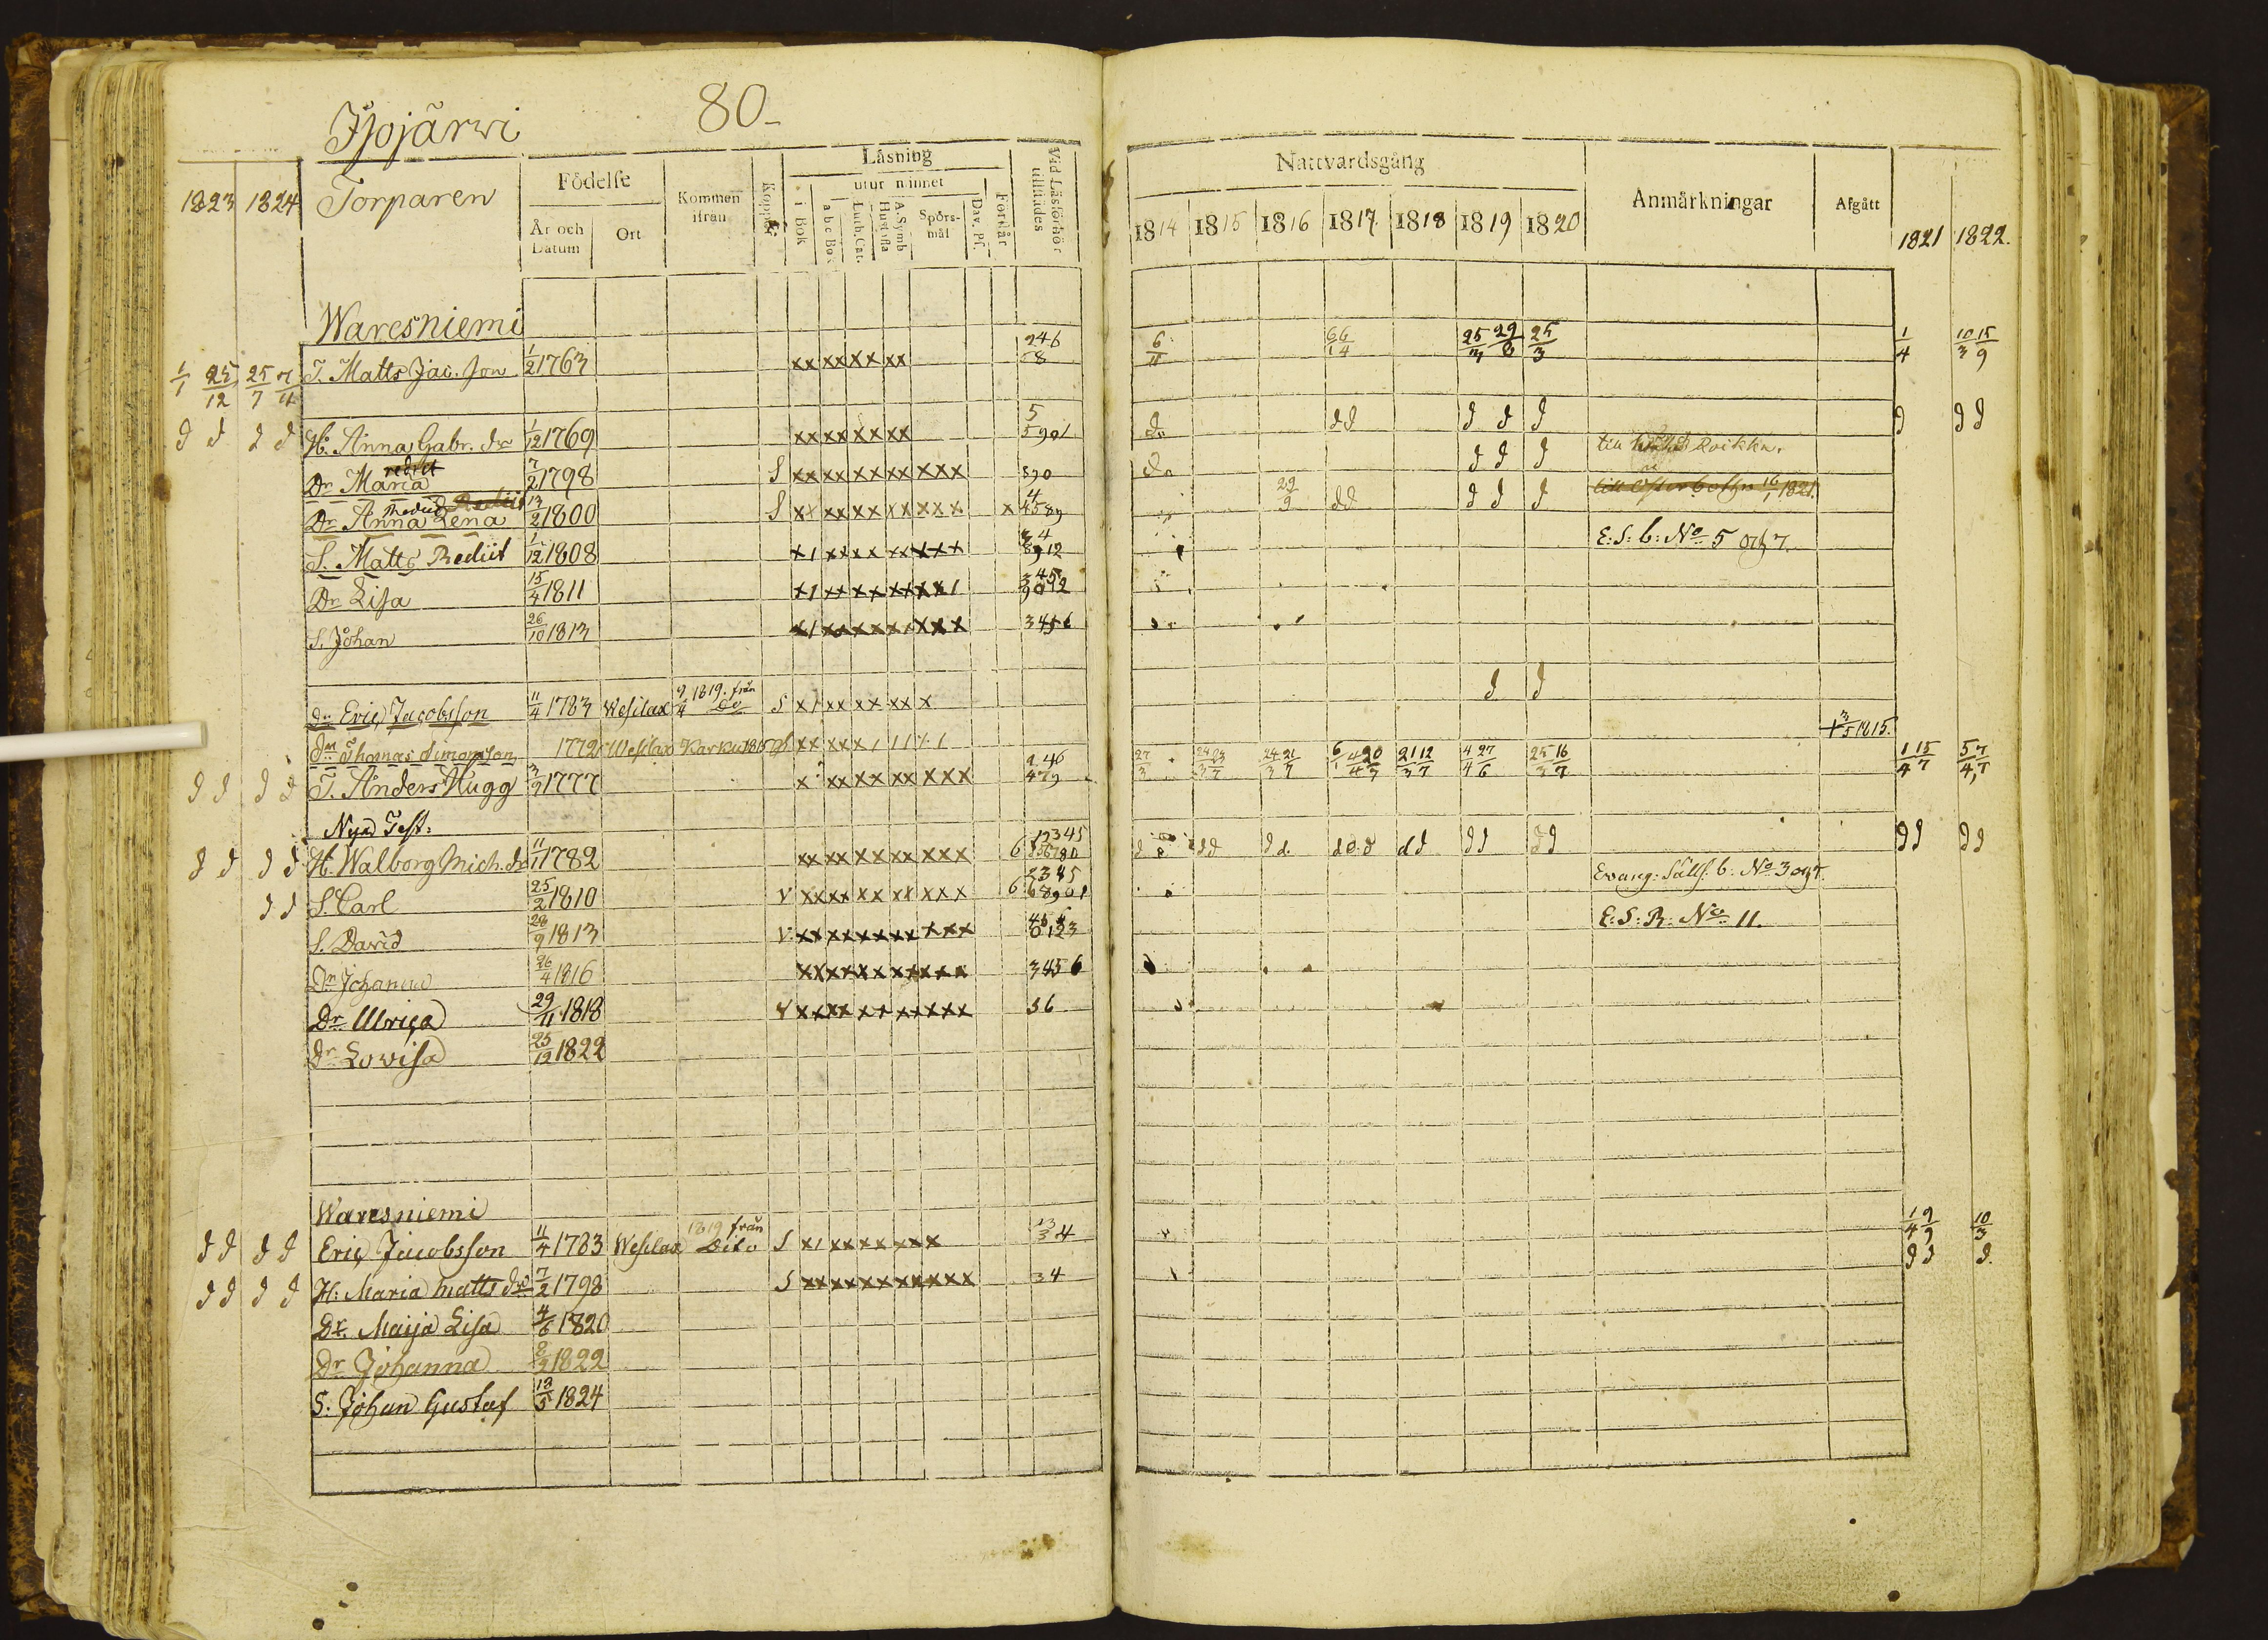 80
Isojärwi
Torparen
1823 1824
Födelse
År och Datum
Ort
Kommen ifrån
Koppor
Läsning
i Bok
utur minnet
a b c Bok
Luth. Cat.
Hustafla
A. Symb
Spörsmål
Dav. Ps.
Förstår
Vid Läsförhör tillstädes
Nattvardsgång
1814 1815 1816 1817 1818 1819 1820
Anmärkningar
Afgått
1821 1822.
Waresniemi
1/1 25/12 25/7 T. Matts Jac. Son 1/2 1763 xx xx xx xx 246 58 6/11 25/3 25/3 1/4 10/3 15/9
d d d d H. Anna Gabr. dr 1/12 1769 xx xx xx xx 5 5901 do dd d d d d dd
Dr Maria 7/2 1798 S xx xx xx xx xxx 890 do d d d till Roikka.
Dr Anna Lena Rediit 13/2 1800 S xx xx xx xx xxx x 4 4589 29/9 dd d d d till Österbotn 16/1 1821.
S. Matts Rediit 1/12 1808 x1 xx xx xx xxx 34 8912 E: S: b: No 5 och 7.
Dr Lisa 15/4 1811 x1 xx xx xx xx1 345 9012
S. Johan 26/10 1813 x1 xx xx xx xxx 3456
dr Eric Jacobsson 11/4 1783 Wesilax 9/4 1819 från do S x1 xx xx xx x d d
Dr Thomas Simonsson 1772 Wesilax Karku 1815 + 3/5 1815.
d d d d T. Anders Hugg 3/2 1777 x xx xx xx xxx 246 479 27/3 24/3 21/7 21/3 12/7 4/4 27/6 25/3 16/7 1/4 15/7 5/4 7/7
Nya Test.
d d d d H. Walborg Mich. dr 11/11 1782 xx xx xx xx xxx 6 12345 dd d d. d d d d d dd dd dd dd
d d S. Carl 25/2 1810 V xx xx xx xx xxx 6 2345 68901 Evang: Sälls. b: No 3 och 7.
S. David 28/9 1813 V xx xx xx xx xxx 456 0123 E: S: B: No 11.
Dr Johanna 26/4 1816 xx xx xx xx xxx 3456
Dr Ulrica 29/11 1818 V xx xx xx xx xxx 56
Dr Lowisa 25/12 1822
Waresniemi
d d d d Eric Jacobsson 11/4 1783 Wesilax 1819 från Dito S x1 xx xx xx x 13 34 1/4 9/9 10/3
d d d d H: Maria Matts dr 7/2 1798 S xx xx xx xx xxx 34 d d d.
Dr. Maija Lisa 4/6 1820
Dr Johanna 8/9 1822
S: Johan Gustaf 13/5 1824